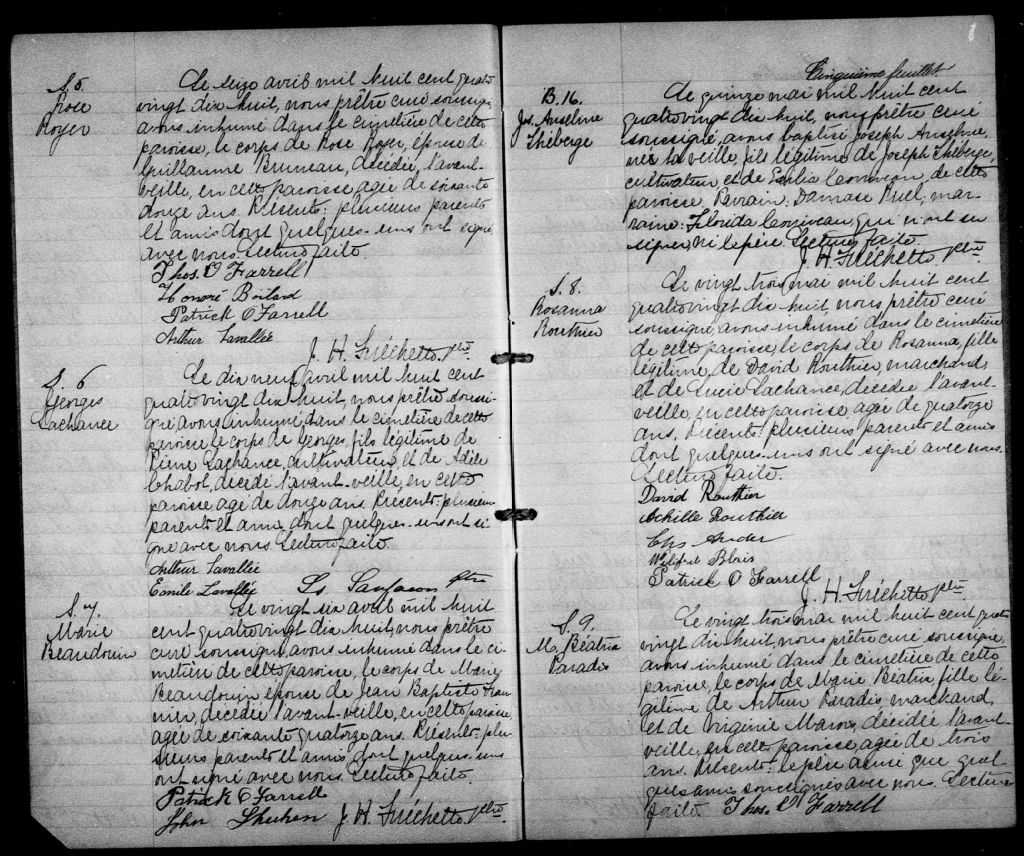 S. 5.
Rose
Royer
Le seize avril mil huit cent quatre
vingt dix huit, nous prêtre curé soussigné
avons inhumé dans le cimetière de cette
paroisse, le corps de Rose Royer, épouse de
Guillaume Bruneau, décédée, l'avant-
veille, en cette paroisse agée de soixante
douze ans. Présents: plusieurs parents
et amis dont quelques-uns ont signé
avec nous. Lecture faite.
Thos. O Farrell
Honoré Boilard
Patrick O Farrell
Arthur Lavallée
J. H. Fréchette. ptre
S. 6
Georges
Lachance
Le dix neuf avril mil huit cent
quatre vingt dix huit, nous prêtre soussi-
gné avons inhumé dans le cimetière de cette
paroisse le corps de Georges, fils légitime de
Pierre Lachance, cultivateur, et de Adèle
Chabot, décédé l'avant-veille, en cette
paroisse agé de douze ans. Présents: plusieurs
parents et amis dont quelques-uns ont si-
gné avec nous Lecture faite.
Arthur Lavallée
Emile Lavallée
ptre
S. 7.
Marie
Beaudouin
Le vingt six avril mil huit
cent quatre vingt dix huit, nous prêtre
curé soussigné, avons inhumé dans le ci-
metière de cette paroisse, le corps de Marie
Beaudouin épouse de Jean Baptiste
décédée l'avant-veille, en cette paroisse
agée de soixante quatorze ans. Présents: plu-
sieurs parents et amis dont quelques-uns
ont signé avec nous. Lecture faite.
Patrick O Farrell
John J. H. Fréchette. ptre
Cinquième feuillet.
B. 16.
Js. Anselme
Théberge
Le quinze mai mil huit cent
quatre vingt dix huit, nous prêtre curé
soussigné, avons baptisé Joseph Anselme,
né la veille, fils légitime de Joseph Théberge,
cultivateur et de Emilia Corriveau, de cette
paroisse. Parrain: Damase Ruel; mar-
raine: Florida Corriveau, qui n'ont su
signer, ni le père. Lecture faite.
J. H. Fréchette ptre
S. 8.
Rosanna
Routhier
Le vingt trois mai mil huit cent
quatre vingt dix huit, nous prêtre curé
soussigné, avons inhumé dans le cimetière
de cette paroisse, le corps de Rosanna, fille
légitime, de David Routhier, marchand,
et de Lucie Lachance, décédée l'avant-
veille, en cette paroisse agée de quatorze
ans. Présents: plusieurs parents et amis
dont quelques-uns ont signé avec nous.
Lecture faite.
David Routhier
Achille Routhier
Wilfrid Blais
Patrick O Farrell
J. H. Fréchette ptre.
S. 9.
M. Béatrix
Paradis
Le vingt trois mai mil huit cent quatre
vingt dix huit, nous prêtre curé soussigné,
avons inhumé dans le cimetière de cette
paroisse, le corps de Marie Béatrix, fille lé-
gitime de Arthur Paradis, marchand,
et de Virginie décédée l'avant-
veille, en cette paroisse, agée de trois
ans. Présents: le père ainsi que quel-
ques amis soussignés avec nous. Lecture
faite. Thos. O'Farrell